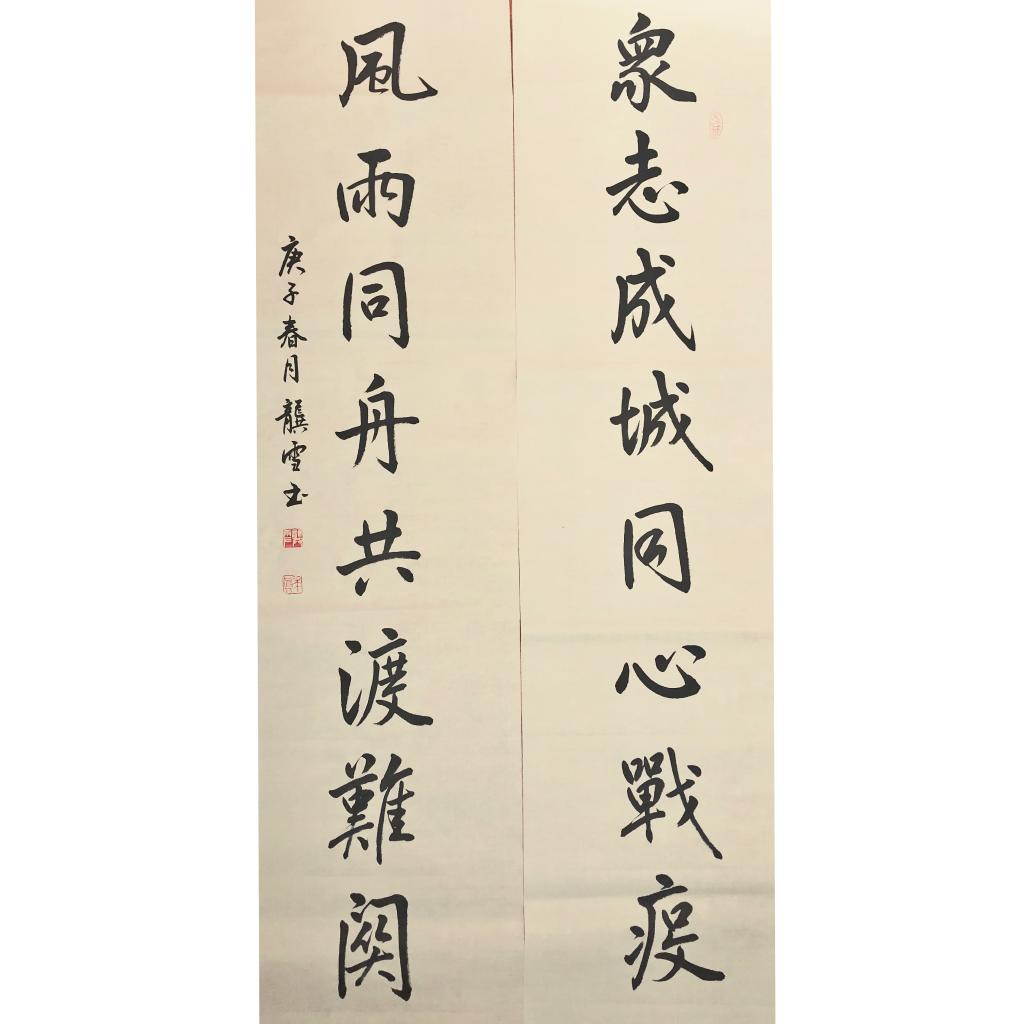 眾志成城同心戰疫
風雨同舟共渡難関
庚子春月龔雪玉